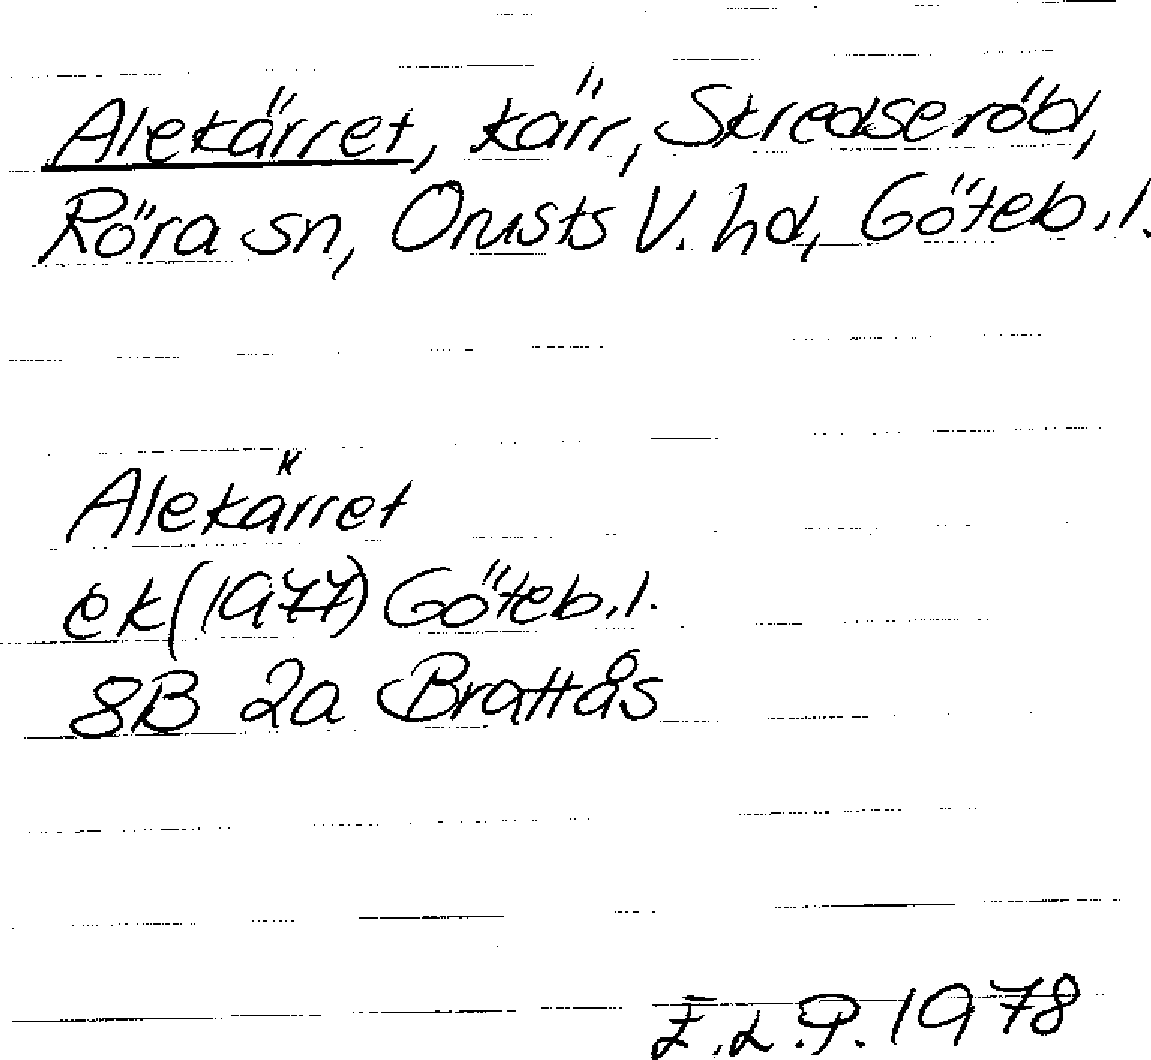 Alekärret, kärr, Skredseröd,
Röra sn, Orusts V. hd, Göteb.l.
Alekärret
ek (1977) Göteb.l.
8B 2a Brattås
E.L.P. 1978